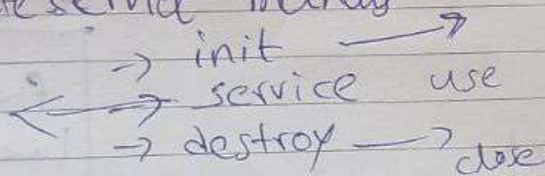 → init →
→ service use
→ destroy → close